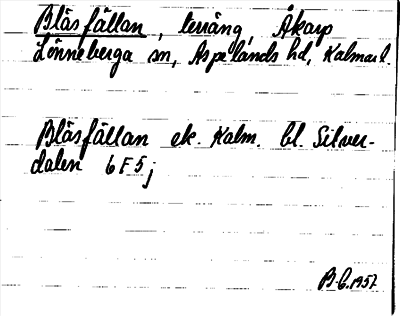 Blåsfällan, terräng, Åkarp
Lönneberga sn, Aspelands hd, Kalmar l.
Blåsfällan ek. Kalm. bl. Silver-
dalen 6F5j
B.G. 1957